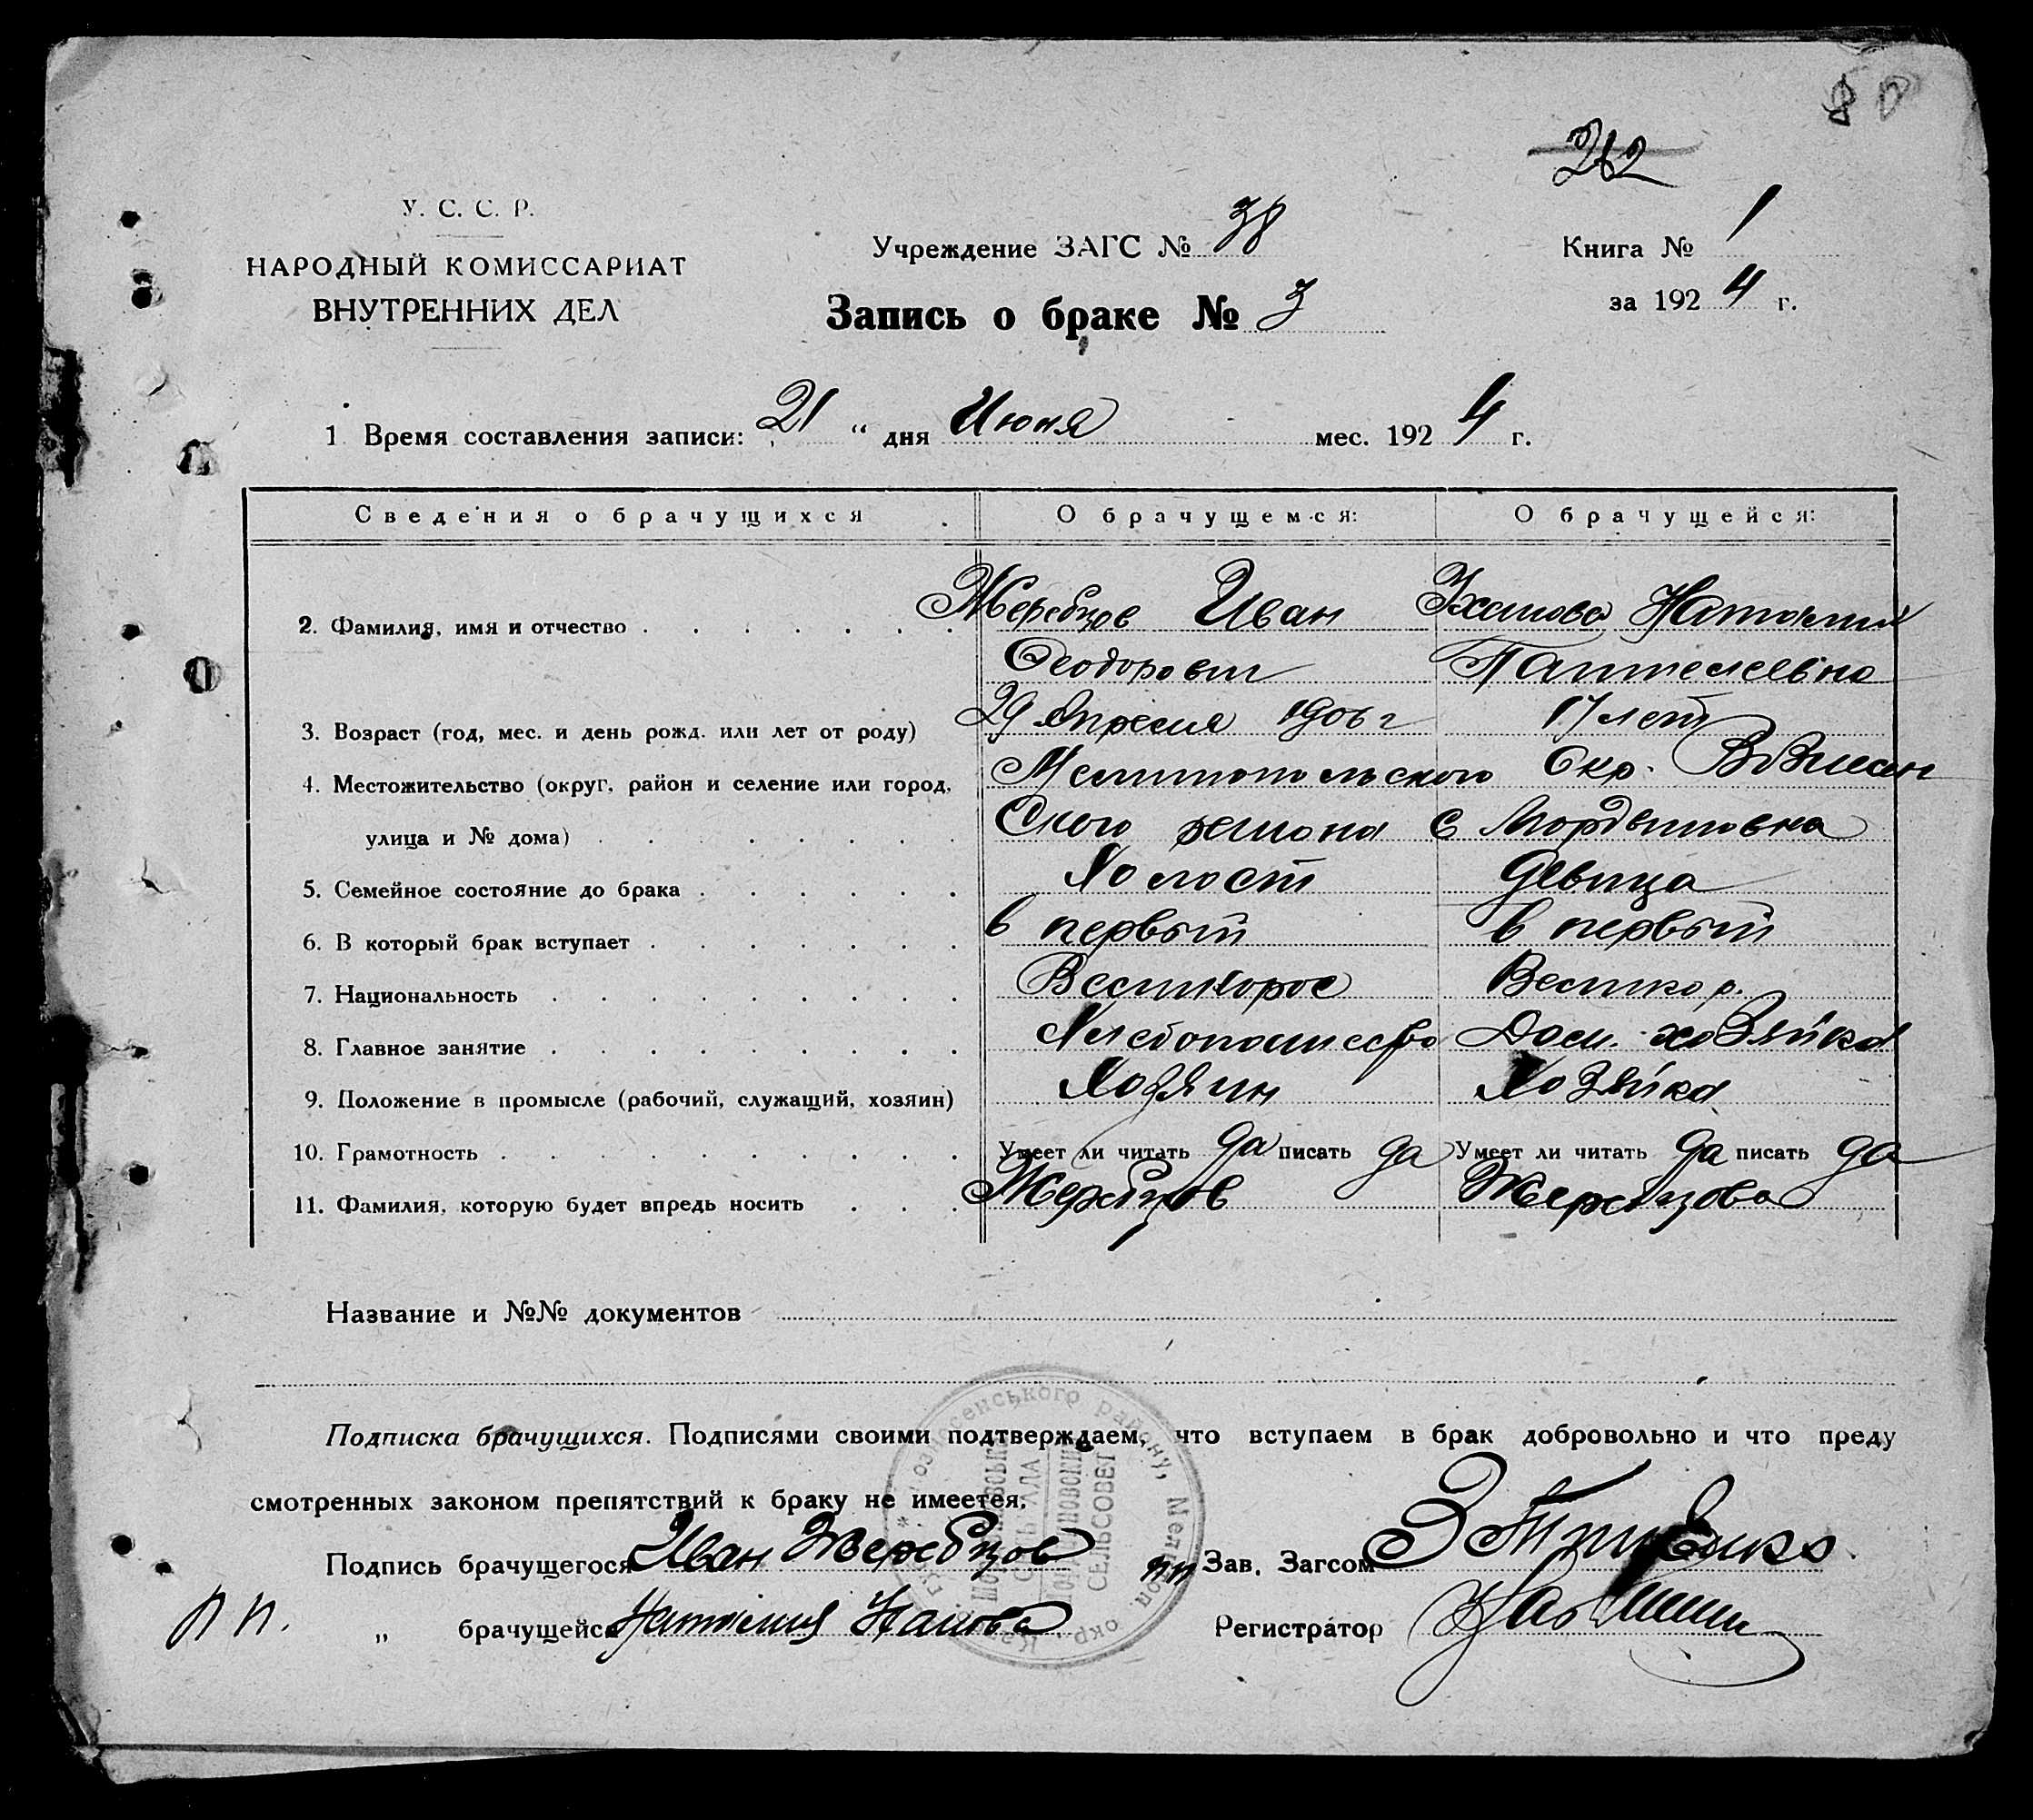 80
262
У. С. С. Р.
НАРОДНЫЙ КОМИССАРИАТ
ВНУТРЕННИХ ДЕЛ
Учреждение ЗАГС № 38
Книга № 1
за 1924 г.
Запись о браке № 3
1 Время составления записи: 21 “ дня Июня мес. 1924 г.
Сведения о брачущихся О брачущемся: О брачущейся:
2. Фамилия, имя и отчество Жеребцов Иван Наталия
Феодорович Пантелеевна
3. Возраст (год, мес. и день рожд. или лет от роду) 29 Апреля 1906 г 17 лет
4. Местожительство (округ, район и селение или город, Мелитопольского Окр. Вознесен
улица и № дома) ского района с Мордвиновка
5. Семейное состояние до брака Холост девица
6. В который брак вступает в первый в первый
7. Национальность Великорос Великор.
8. Главное занятие Хлебопашество Дом. хозяйка
9. Положение в промысле (рабочий, служащий, хозяин) Хозяин Хозяйка
10. Грамотность Умеет ли читать да писать да Умеет ли читать да писать да
11. Фамилия, которую будет впредь носить Жеребцов Жеребцова
Название и №№ документов
Подписка брачущихся. Подписями своими подтверждаем, что вступаем в брак добровольно и что преду
смотренных законом препятствий к браку не имеется.
Подпись брачущегося Иван Жеребцов пп Зав. Загсом
пп. „ брачущейся Наталия Регистратор
району, Мелітоп. окр.
СЕЛЬСОВЕТ